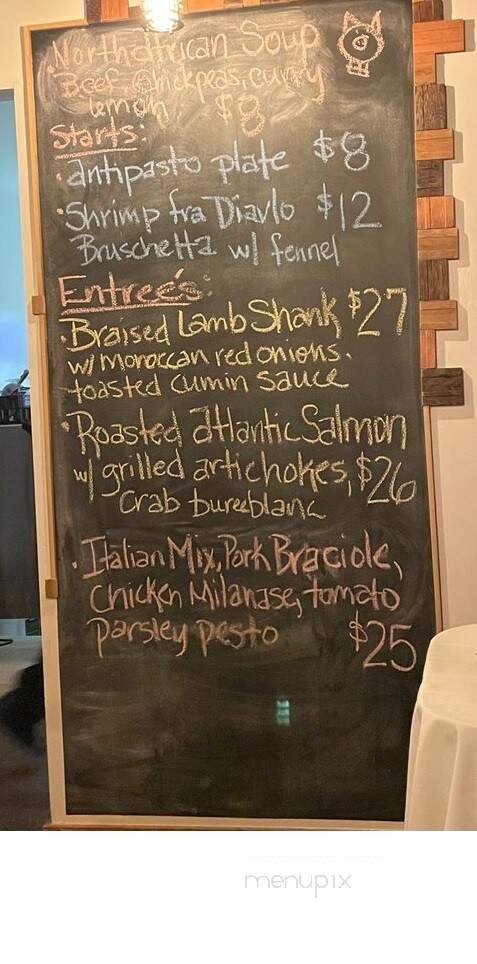 North African Soup
Beef, Chickpeas, curry
lemon $8
Starts:
·antipasto plate $8
·Shrimp fra Diavlo $12
Bruschetta w/ fennel
Entreé's:
·Braised Lamb Shank $27
w/ moroccan red onions.
toasted cumin sauce
·Roasted atlantic Salmon
w/ grilled artichokes, $26
Crab bureblanc
·Italian Mix, Pork Braciole,
Chicken Milanase, tomato
parsley pesto $25
menupix